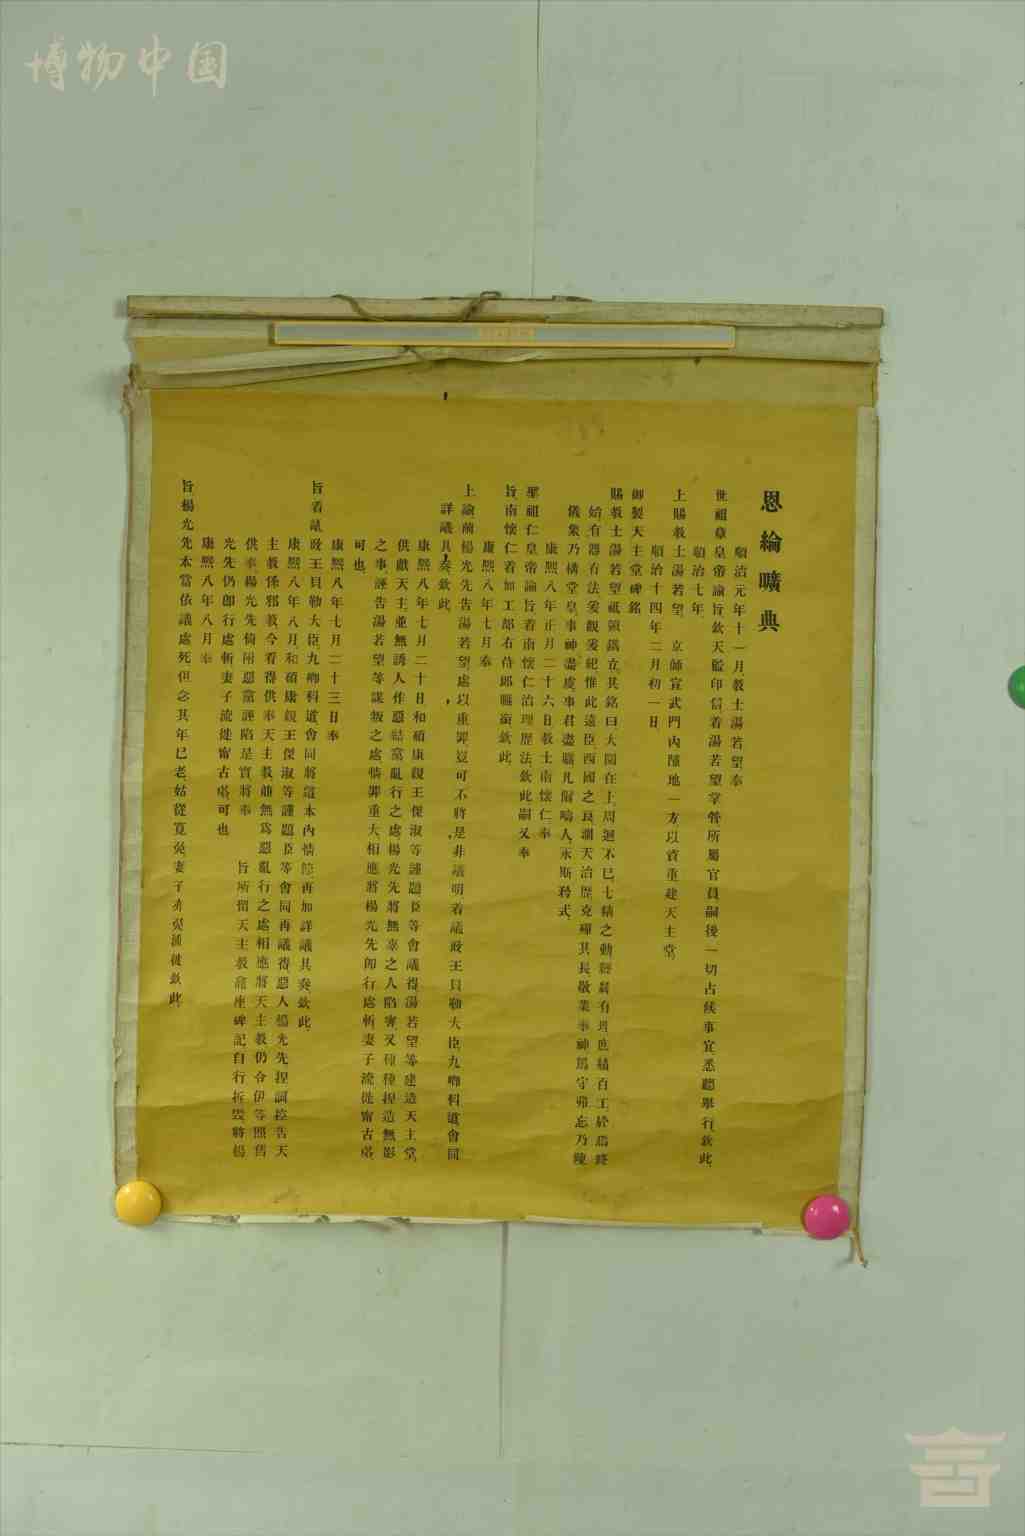 博物中国
恩綸曠典
順治元年十一月教士湯若望奉
世祖章皇帝諭旨欽天監印信着湯若望掌管所屬官員嗣後一切占候事宜悉聽舉行欽此
順治七年
上賜教士湯若望 京師宣武門內隙地一方以資重建天主堂
順治十四年二月初一日
御製天主堂碑銘
賜教士湯若望祗領鐫立其銘曰大圜在上周迴不已七精之動經緯有理庶績百工於焉終
始有器有法爰觀爰紀惟此遠臣西國之良測天治歷克殫其長敬業奉神篤守弗忘乃陳
儀象乃構堂皇事神盡虔事君盡職凡爾疇人永斯矜式
康熙八年正月二十六日教士南懷仁奉
聖祖仁皇帝諭旨着南懷仁治理歷法欽此嗣又奉
旨南懷仁着加工部右侍郎職銜欽此
康熙八年七月奉
上諭前楊光先告湯若望處以重罪豈可不將是非議明着議政王貝勒大臣九卿科道會同
詳議具奏欽此
康熙八年七月二十日和碩康親王傑淑等謹題臣等會議得湯若望等建造天主堂
供獻天主並無誘人作惡結黨亂行之處楊光先將無辜之人陷害又種種捏造無影
之事誣告湯若望等謀叛之處情罪重大相應將楊光先卽行處斬妻子流徙甯古塔
可也
康熙八年七月二十三日奉
旨着議政王貝勒大臣九卿科道會同將這本內情節再加詳議具奏欽此
康熙八年八月和碩康親王傑淑等謹題臣等會同再議得惡人楊光先捏詞控告天
主教係邪教今看得供奉天主教並無爲惡亂行之處相應將天主教仍令伊等照舊
供奉楊光先倚附惡黨誣陷是實將奉 旨所留天主教龕座碑記自行拆毀將楊
光先仍卽行處斬妻子流徙甯古塔可也
康熙八年八月奉
旨楊光先本當依議處死但念其年已老姑從寬免妻子亦免流徙欽此